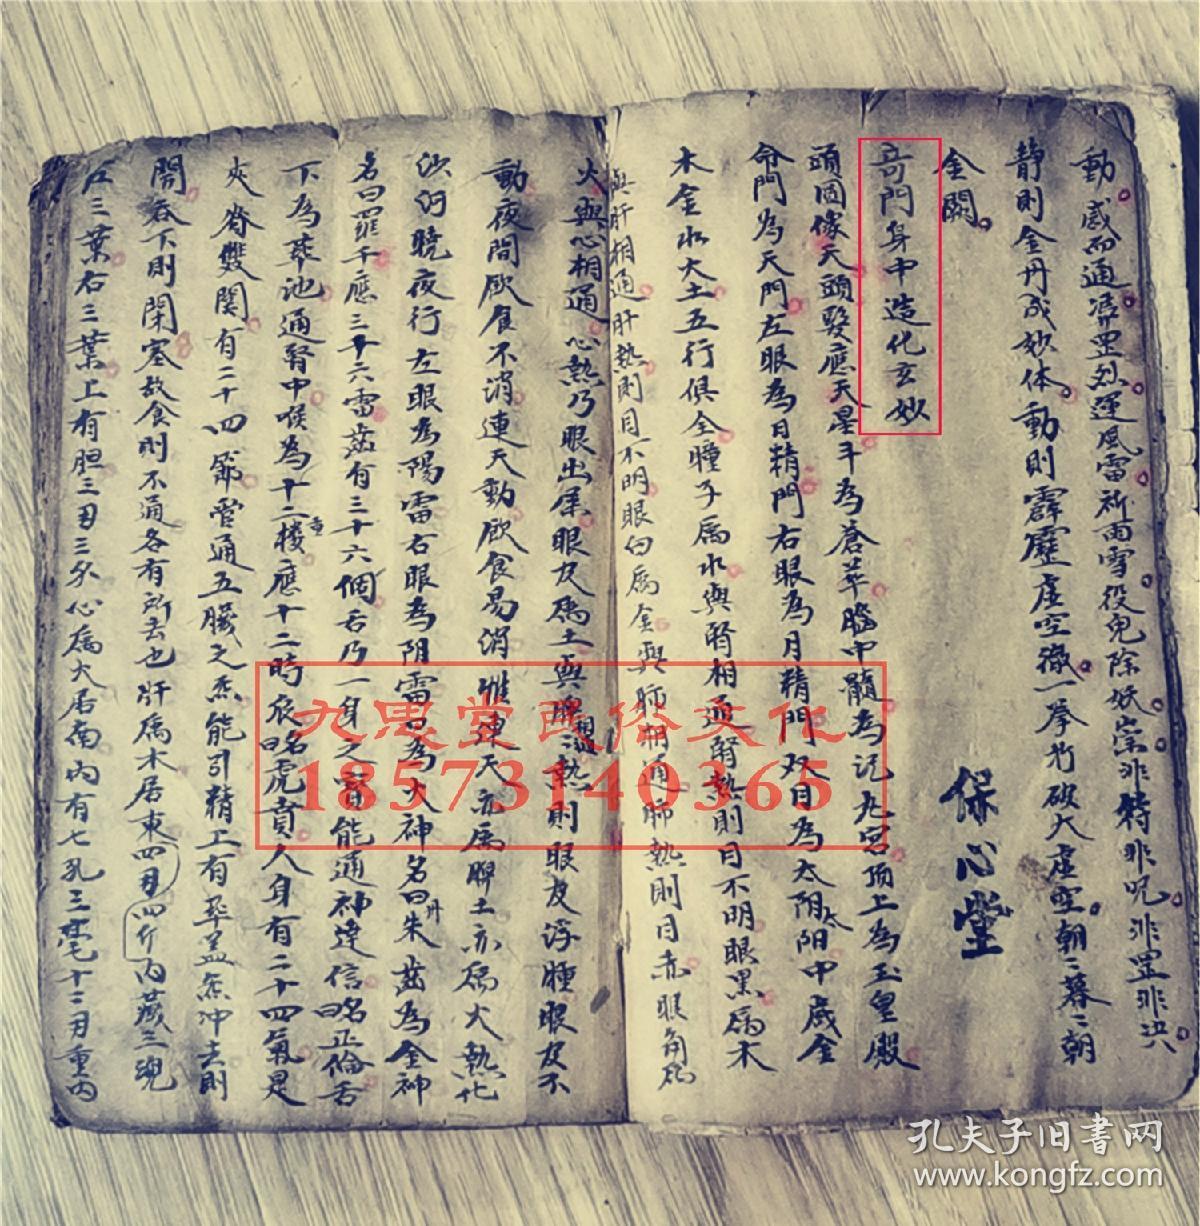 動感而通濟罡烈運風雷祈雨雪役鬼除妖祟非特非呪非罡非决
静則金丹成妙体動則霹靂虛空徹一拳打破大虛空朝〻暮〻朝
金闕
保心堂
奇門身中造化玄妙
頭圓像天頭髮應天星斗為蒼華腦中髓為泥九宮頂上為玉皇殿
命門為天門左眼為日精門右眼為月精門双目為太阴太阳中藏金
木金水火土五行俱全瞳子屬水與腎相通腎熱則目不明眼黑屬木
與肝相通肝熱則目不明眼白屬金與肺相通肺熱則目赤眼角屬
火與心相通心熱乃眼出屎眼皮屬土與脾相通熱則眼皮浮腫眼皮不
動夜間飲食不消連天動飲食易消雖連天亦屬脾土亦屬火熱化
飲何曉夜行左眼為陽雷右眼為阴雷口為火神名曰朱丹齒為金神
名曰羅千應三十六雷齒有三十六個舌乃一身之官能通神達信名曰正倫舌
下為華池通腎中喉為十二重樓應十二時辰名曰虎賁人身有二十四氣是
夾脊雙関有二十四節管通五臟之炁能引精上有華盖炁冲去則
開吞下則閉塞故食則不通各有所去也肝屬木居東四月四斤内藏三魂
左三葉右三葉上有胆三月三分心屬火居南内有七孔三毫十二月重内
九思堂民俗文化
18573140365
孔夫子旧書网
www.kongfz.com